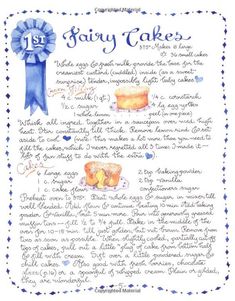 1ST
Fairy Cakes
375° Makes 18 large
36 small cakes
Whole eggs & fresh milk provide the base for the
creamiest custard (cuddled) inside (as a sweet
surprise) tender, impossibly light baby cakes
Cream Filling
4 c. milk (1 qt.)
1/2 c. sugar
1 whole lemon
1/4 c. cornstarch
4 lg egg yolks
Whisk all ingred. together in a saucepan over med. high
heat. Stir constantly till thick. Remove lemon rind & set
aside to cool. this makes a lot more than you need to
fill the cakes, which I never regretted all 3 times I made it —
lots of fun stuff to do with the extra
Cakes
large eggs
c. sugar
c. cake flour
2 tsp baking powder
2 tsp vanilla
confectioners sugar
Preheat oven to 375°. Beat whole eggs & sugar in mixer, till
well blended. Add flour & continue beating 5 min. Add baking
powder & vanilla, beat 5 min. more. Pour into generously greased
muffin tins — fill 1/2 to 3/4 full. Bake in the middle of the
oven for 10-15 min. till just golden, but not brown. Remove from
tins as soon as possible. When slightly cooled, partially cut off
tops of cakes, pull out a little "plug" of cake from bottom half
& fill with cream. Sift over a little powdered sugar &
chill cakes. Also good with fresh berries, chocolate
or a spoonful of whipped cream. Plain or gilded,
they are wonderful.